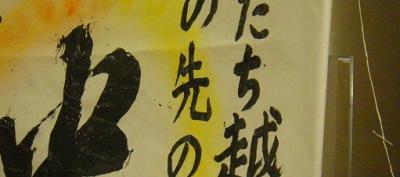 たち越
の先の